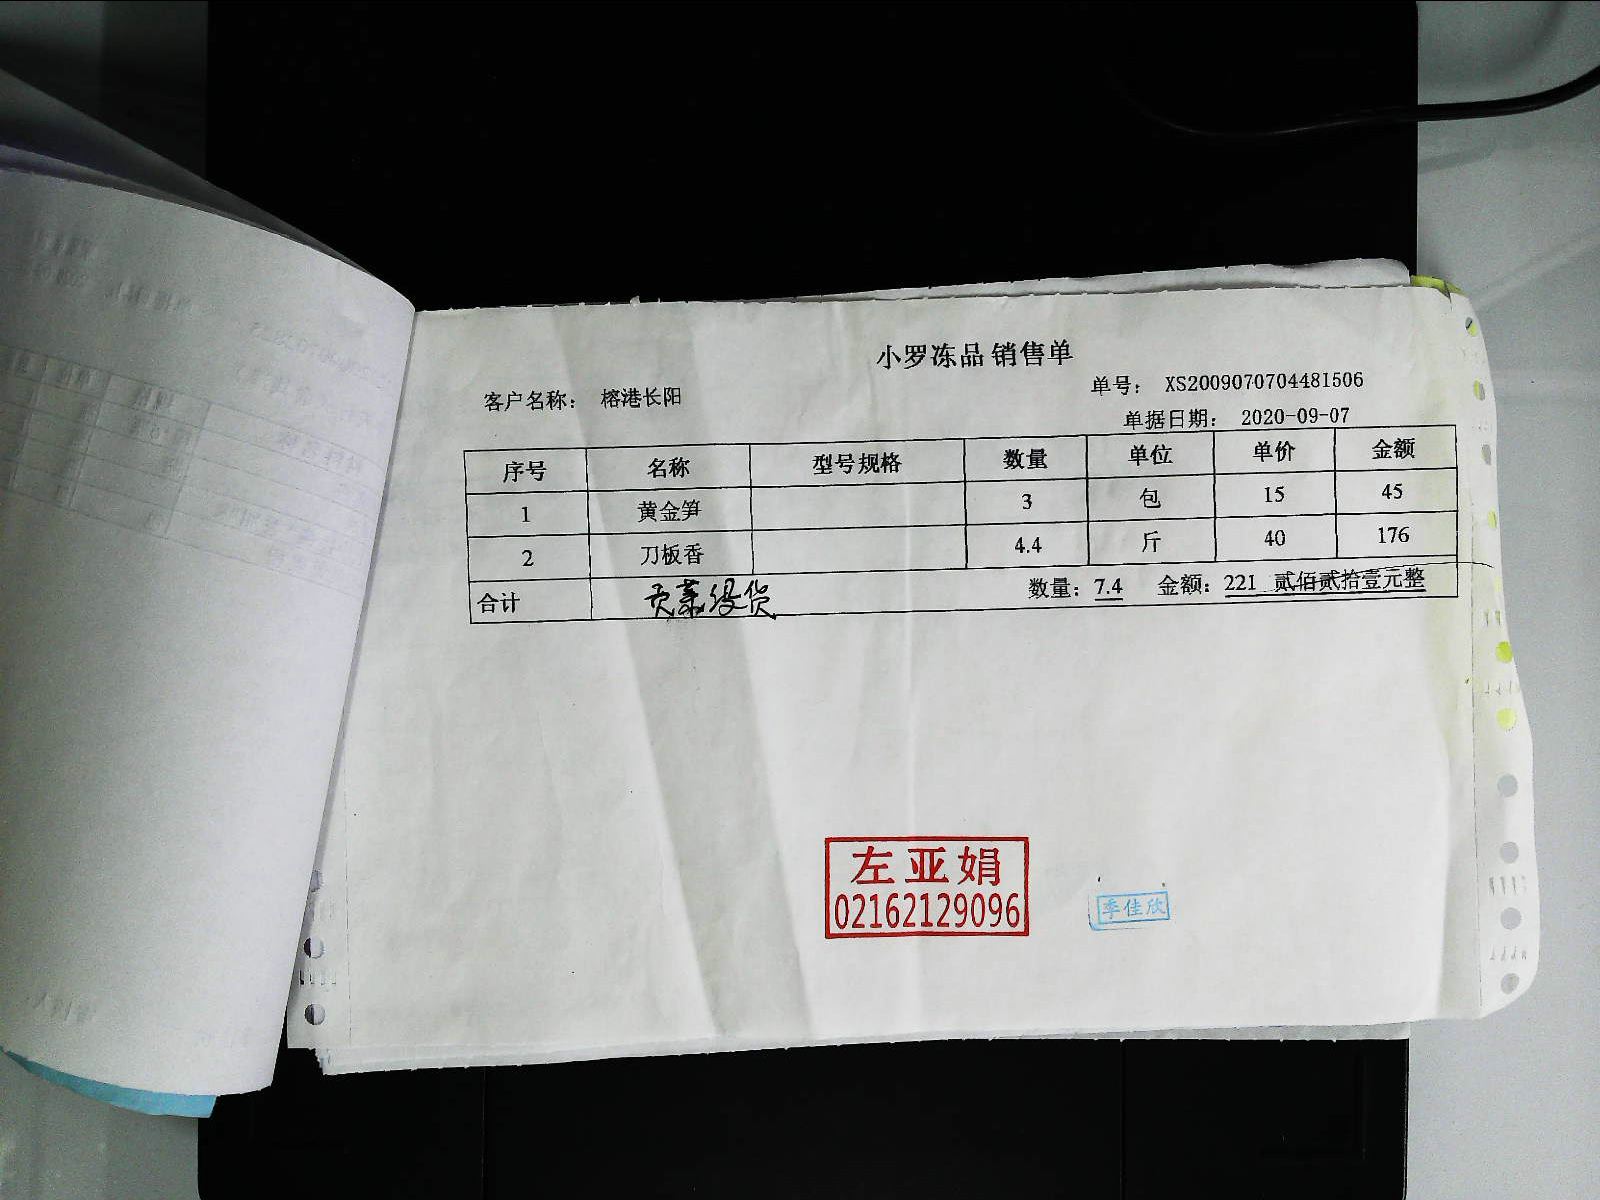 小罗冻品 销售单
客户名称： 榕港长阳 单号： XS2009070704481506
单据日期： 2020-09-07
序号 名称 型号规格 数量 单位 单价 金额
1 黄金笋 3 包 15 45
2 刀板香 4.4 斤 40 176
合计 贡菜没货 数量：7.4 金额：221 贰佰贰拾壹元整
左亚娟
02162129096
季佳欣